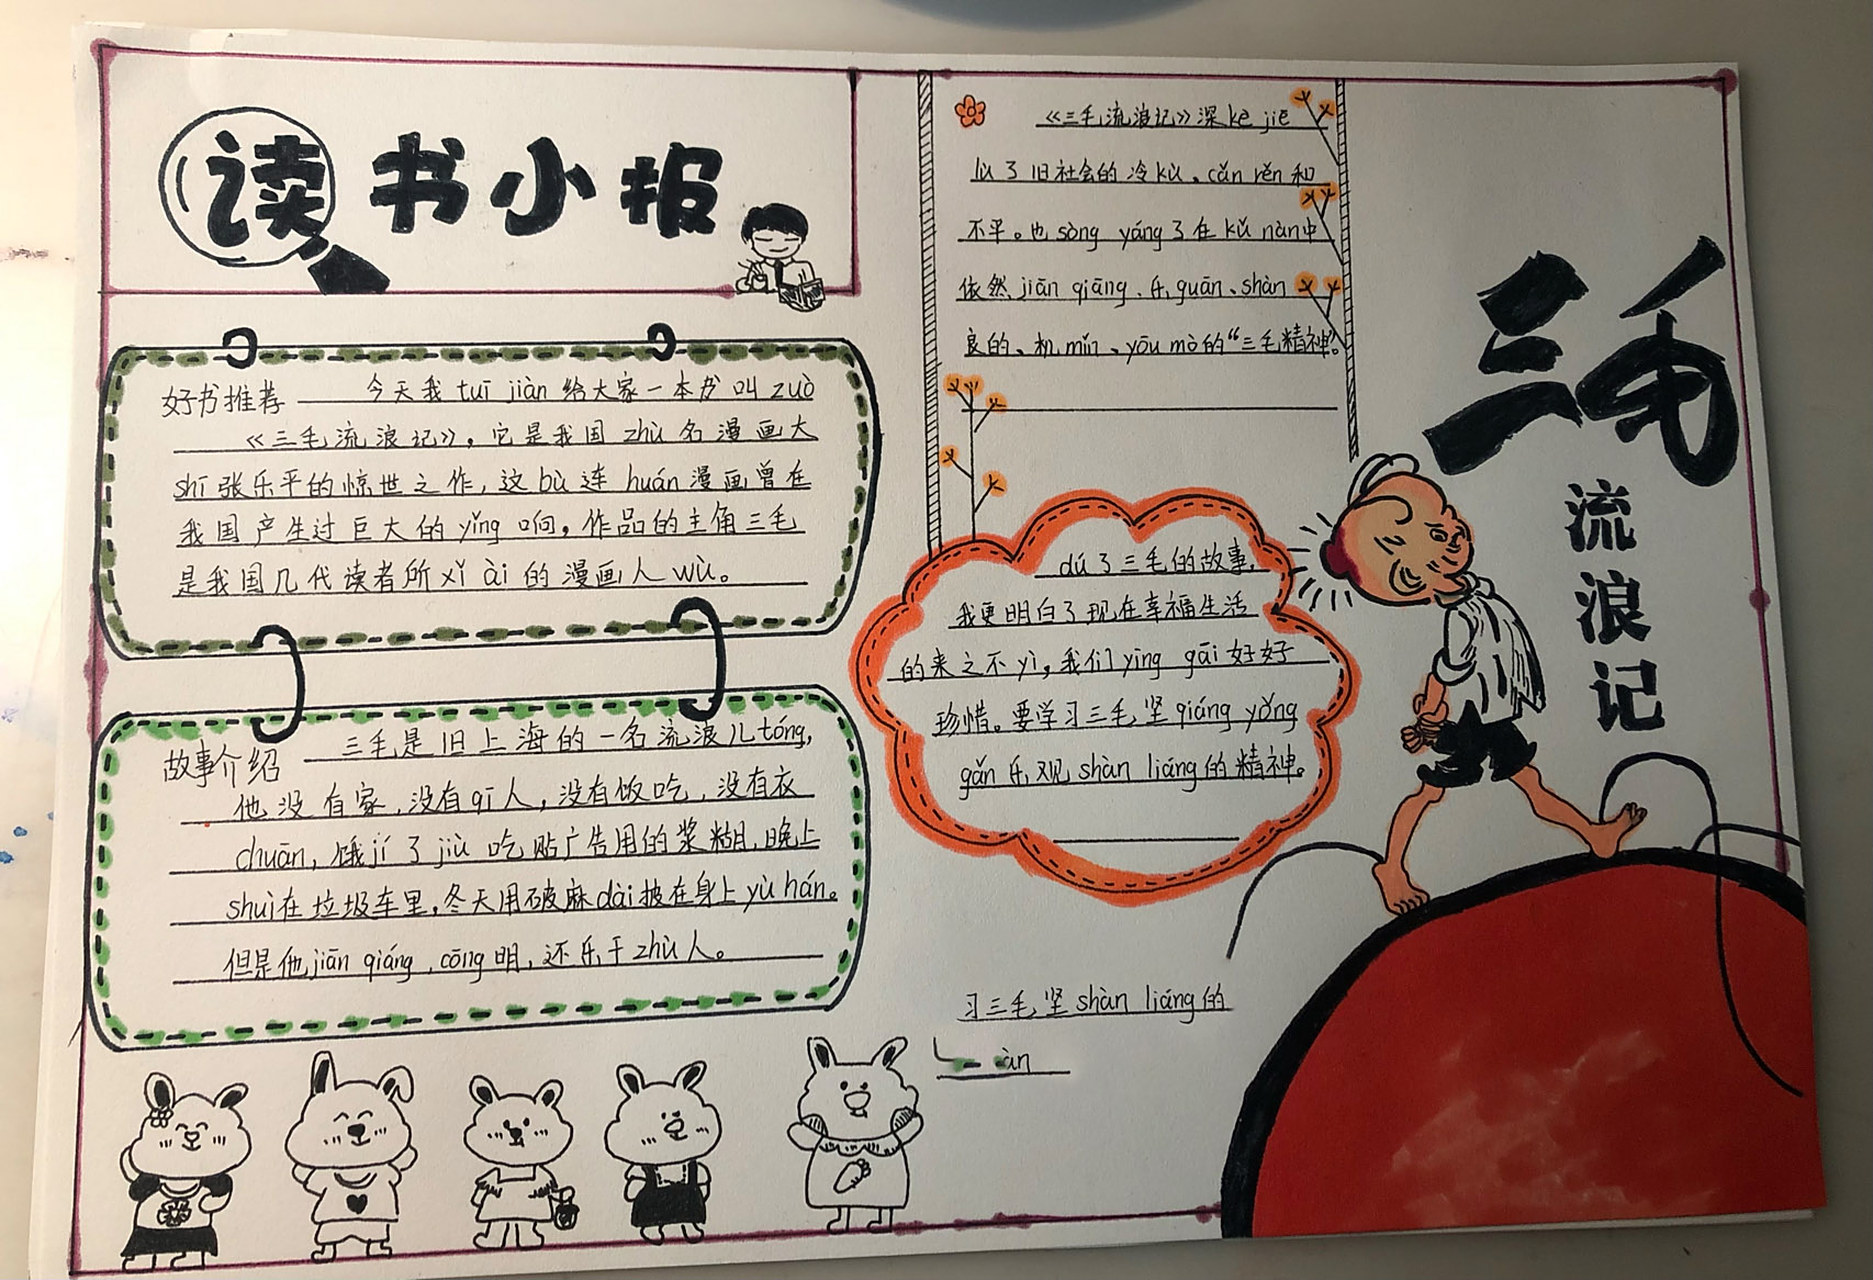 读书小报
好书推荐 今天我 tuī jiàn 给大家一本书叫 zuò
《三毛流浪记》，它是我国 zhù 名漫画大
shī 张乐平的惊世之作，这 bù 连 huán 漫画曾在
我国产生过巨大的 yǐng 响，作品的主角三毛
是我国几代读者所 xǐ ài 的漫画人 wù。
故事介绍 三毛是旧上海的一名流浪儿 tóng,
他没有家，没有 qī 人，没有饭吃，没有衣
chuān，饿 jí 了 jiù 吃贴广告用的浆糊，晚上
shuì 在垃圾车里，冬天用破麻 dài 披在身上 yù hán。
但是他 jiān qiáng，cōng 明，还乐于 zhù 人。
《三毛流浪记》深 kè jiē
lù 了旧社会的冷 kù、cǎn rěn 和
不平。也 sòng yáng 了在 kǔ nàn 中
依然 jiān qiāng、乐 guān、shàn
良的、机 mǐn、yōu mò 的“三毛精神”。
dú 了三毛的故事,
我更明白了现在幸福生活
的来之不 yì，我们 yīng gāi 好好
珍惜。要学习三毛坚 qiáng yǒng
gǎn 乐观 shàn liáng 的精神。
习三毛坚 shàn liáng 的
àn
三毛
流
浪
记